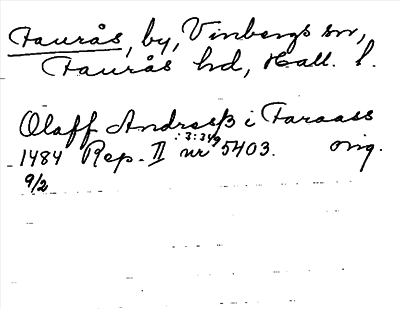 Faurås, by, Vinbergs sn,
Faurås hd, Hall. l.
Olaff Andresß i Faraass
1484 Rep. II :3:349 nr 5403. orig.
9/2